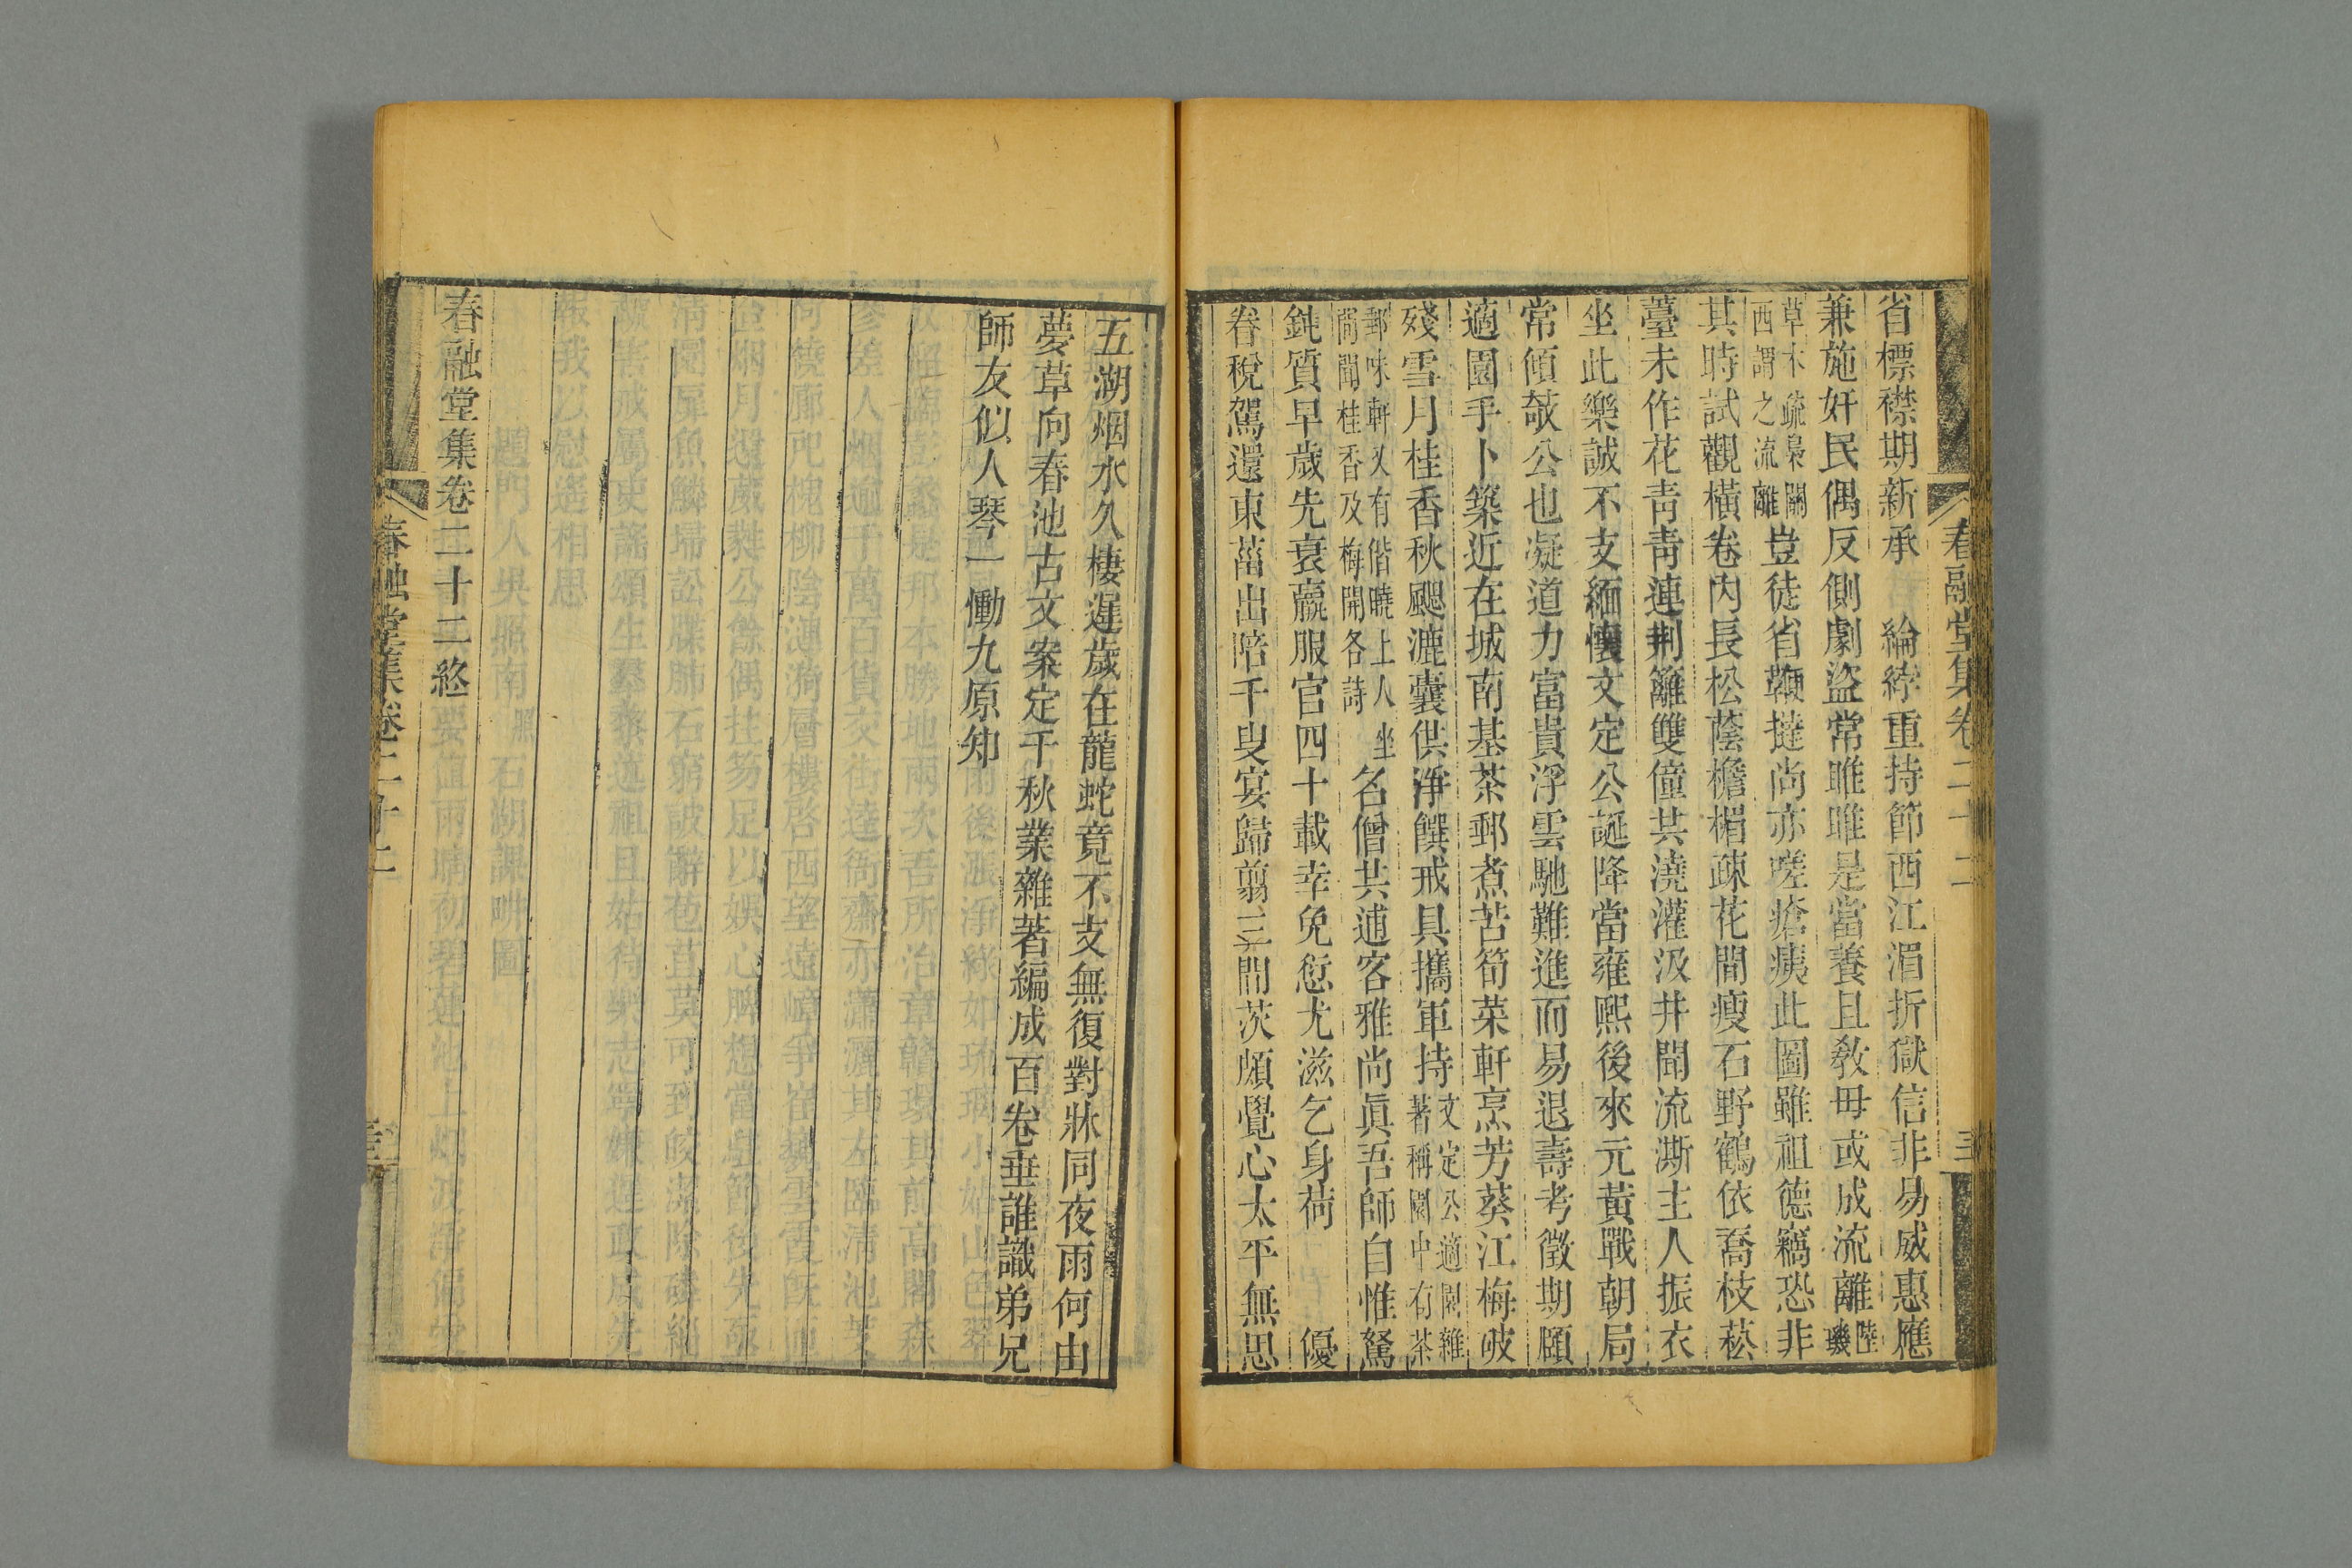 春融堂集卷二十二
三
省標襟期新承　綸綍重持節西江湄折獄信非易威惠應
兼施奸民偶反側劇盜常睢睢是當養且敎毋或成流離陸璣
草木疏梟鷗西謂之流離豈徒省鞭撻尚亦嗟瘡痍此圖雖祖德竊恐非
其時試觀橫卷內長松蔭檐楣疎花間瘦石野鶴依喬枝菘
薹未作花靑靑連荆籬雙僮共澆灌汲井聞流澌主人振衣
坐此樂誠不支緬懷文定公誕降當雍熙後來元黃戰朝局
常傾欹公也凝道力富貴浮雲馳難進而易退壽考徵期頤
適園手卜築近在城南基茶郵煮苦筍菜軒烹芳葵江梅破
殘雪月桂香秋颸漉囊供淨饌戒具攜軍持文定公適園雜著稱園中有茶
郵味軒又有偕曉上人坐閒聞桂香及梅開各詩名僧共逋客雅尚眞吾師自惟駑
鈍質早歲先衰羸服官四十載幸免愆尤滋乞身荷　　優
眷稅駕還東菑出陪千叟宴歸翦三間茨頗覺心太平無思
五湖烟水久棲遲歲在龍蛇竟不支無復對牀同夜雨何由
夢草向春池古文案定千秋業雜著編成百卷垂誰識弟兄
師友似人琴一慟九原知
春融堂集卷二十二終
春融堂集卷二十二